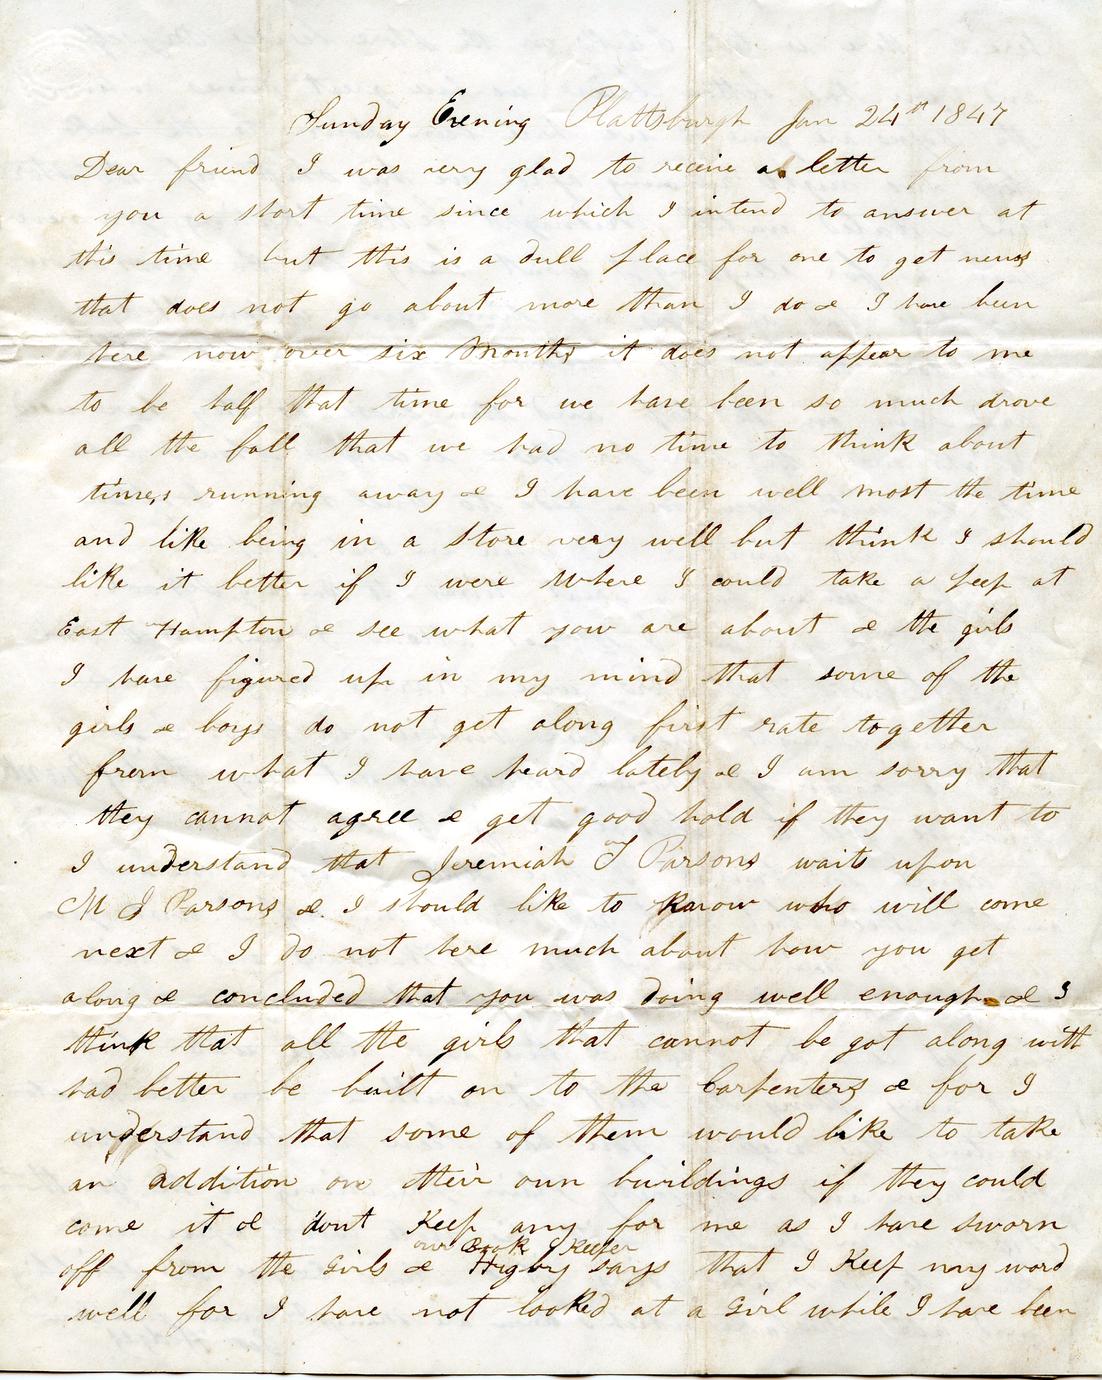 Sunday Evening Plattsburgh Jan 24th 1847
Dear friend I was very glad to receive a letter from
you a short time since which I intend to answer at
this time but this is a dull place for one to get news
that does not go about more than I do & I have been
here now over six Months it does not appear to me
to be half that time for we have been so much drove
all the fall that we had no time to think about
times running away & I have been well most the time
and like being in a store very well but think I should
like it better if I were Where I could take a peep at
East Hampton & see what you are about & the girls
I have figured up in my mind that some of the
girls & boys do not get along first rate together
from what I have heard lately & I am sorry that
they cannot agree & get good hold if they want to
I understand that Jeremiah T Parsons waits upon
M J Parsons & I should like to know who will come
next & I do not here much about how you get
along & concluded that you was doing well enough & I
think that all the girls that cannot be got along with
had better be built on to the Carpenters & for I
understand that some of them would like to take
an addition on their own buildings if they could
come it & dont Keep any for me as I have sworn
our Book Keeper
off from the Girls & Higby says that I Keep my word
well for I have not looked at a Girl while I have been